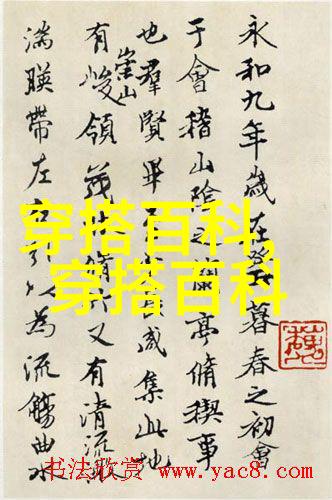 永和九年歲在癸暮春之初會
于會稽山陰之蘭亭脩禊事
也羣賢畢咸集此地
有崇山峻領茂林脩竹又有清流激
湍暎帶左右引以為流觴曲水
穿搭百科,
穿搭百科
书法欣赏 www.yac8.com